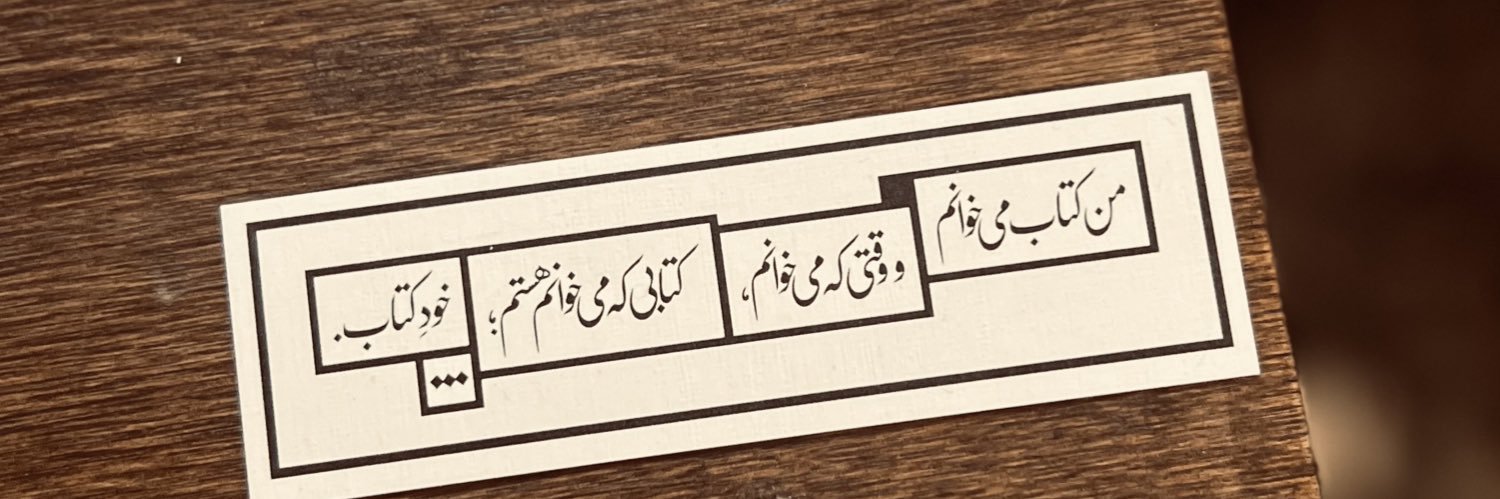 من کتاب می‌خوانم
و وقتی که می‌خوانم،
کتابی که می‌خوانم هستم؛
خودِ کتاب.
...